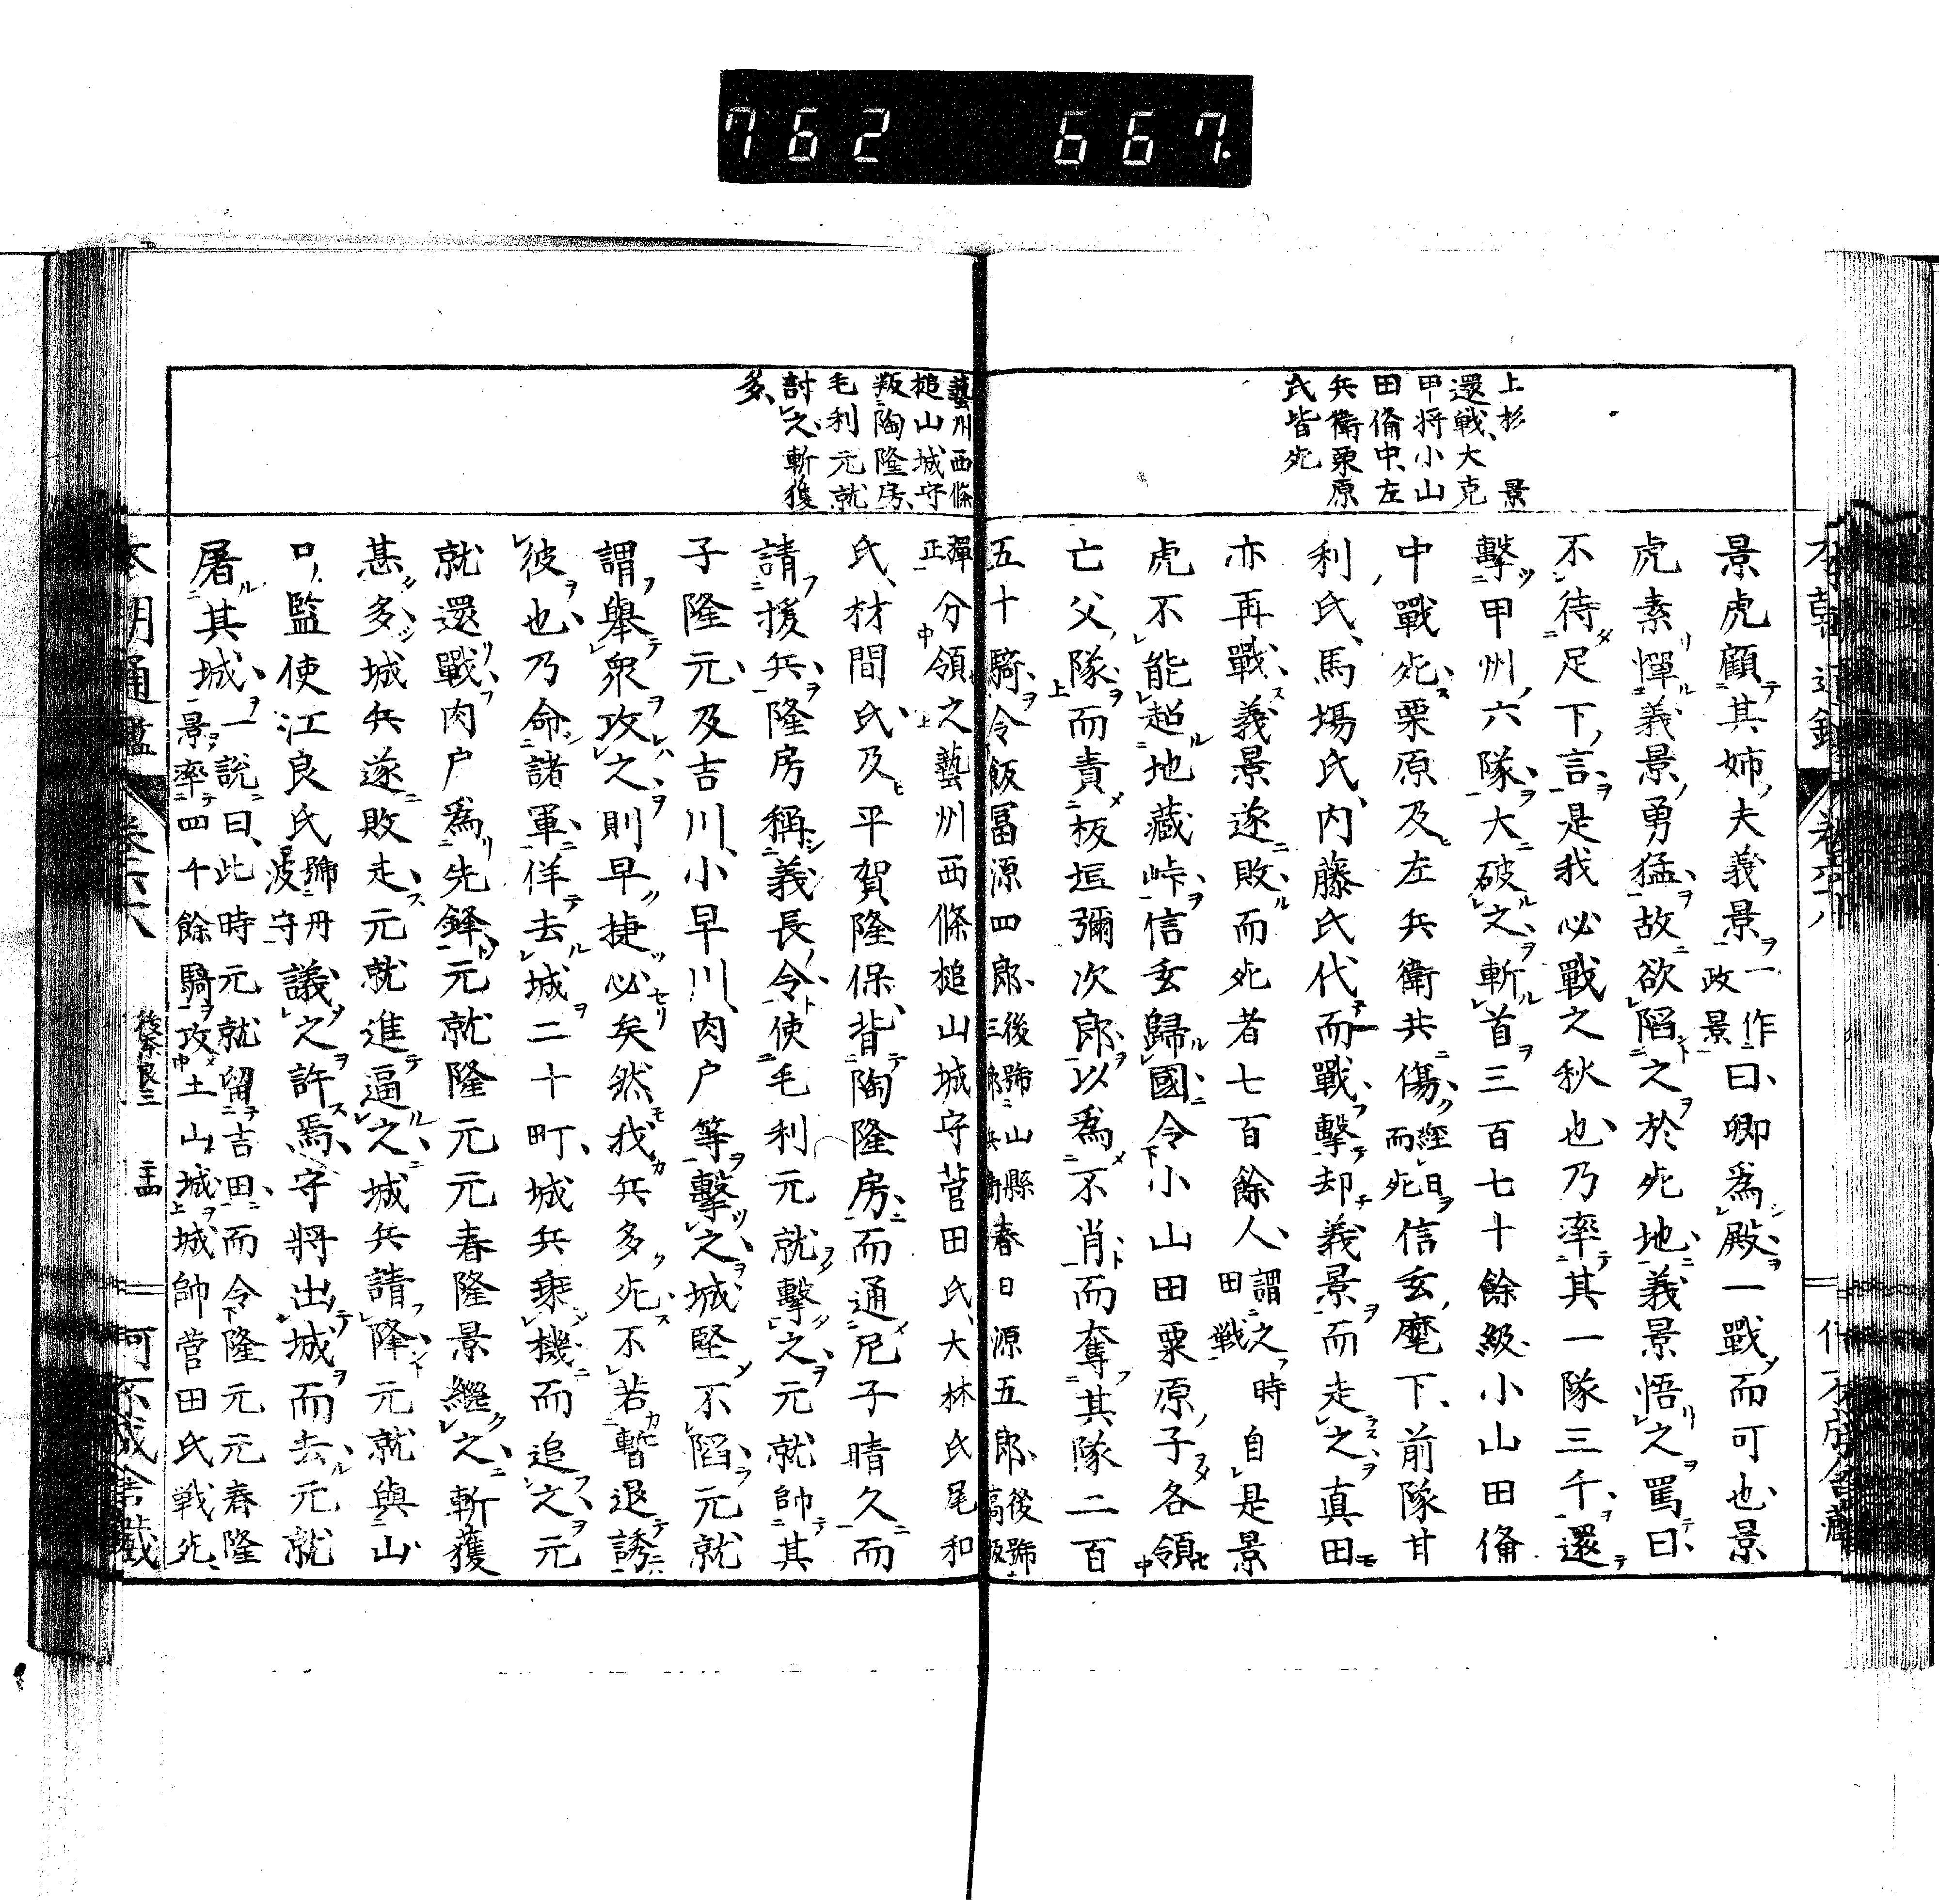 762 667.
上杉景
還戦、大克
甲将小山
田備中、左
兵衛栗原
氏皆死
景虎顧其姉夫義景一作政景曰、卿爲殿一戰而可也、景
虎素憚義景勇猛故欲陷之於死地、義景悟之罵曰、
不待足下言是我必戰之秋也、乃率其一隊三千、還
擊甲州六隊、大破之、斬首三百七十餘級、小山田備
中戰死、栗原及左兵衛共傷、經日而死信玄麾下、前隊甘
利氏、馬場氏、内藤氏代而戰、擊却義景而走之、真田
亦再戰、義景遂敗、而死者七百餘人、謂之時田戦自是景
虎不能越地藏峠、信玄歸國、令小山田栗原子各領
亡父隊、而責板垣彌次郎、以爲不肖、而奪其隊二百
五十騎、令飯冨源四郎、後號山縣三郎兵衛春日源五郎、後號高坂
彈正分領之藝州西條槌山城守菅田氏、大林氏尾和
氏、材間氏、及平賀隆保、背陶隆房、而通尼子晴久、而
請援兵、隆房稱義長、令使毛利元就擊之、元就帥其
子隆元、及吉川、小早川、肉戶等擊之、城堅不陷、元就
謂、舉衆攻之、則早捷必矣、然我兵多死、不若暫退誘
彼也、乃命諸軍、佯去城二十町、城兵乘機而追之、元
就還戰、肉户爲先鋒、元就隆元元春隆景繼之、斬獲
甚多、城兵遂敗走、元就進逼之、城兵請降、元就與山
口監使江良氏號丹波守議之許焉、守將出城而去、元就
屠其城、一説曰、此時元就留吉田、而令隆元元春隆景率四千餘騎攻土山城、城帥菅田氏戦死、
藝州西條
槌山城守
叛陶隆房、
毛利元就
討之、斬獲
多、
本朝通鑑 卷六八 後奈良三